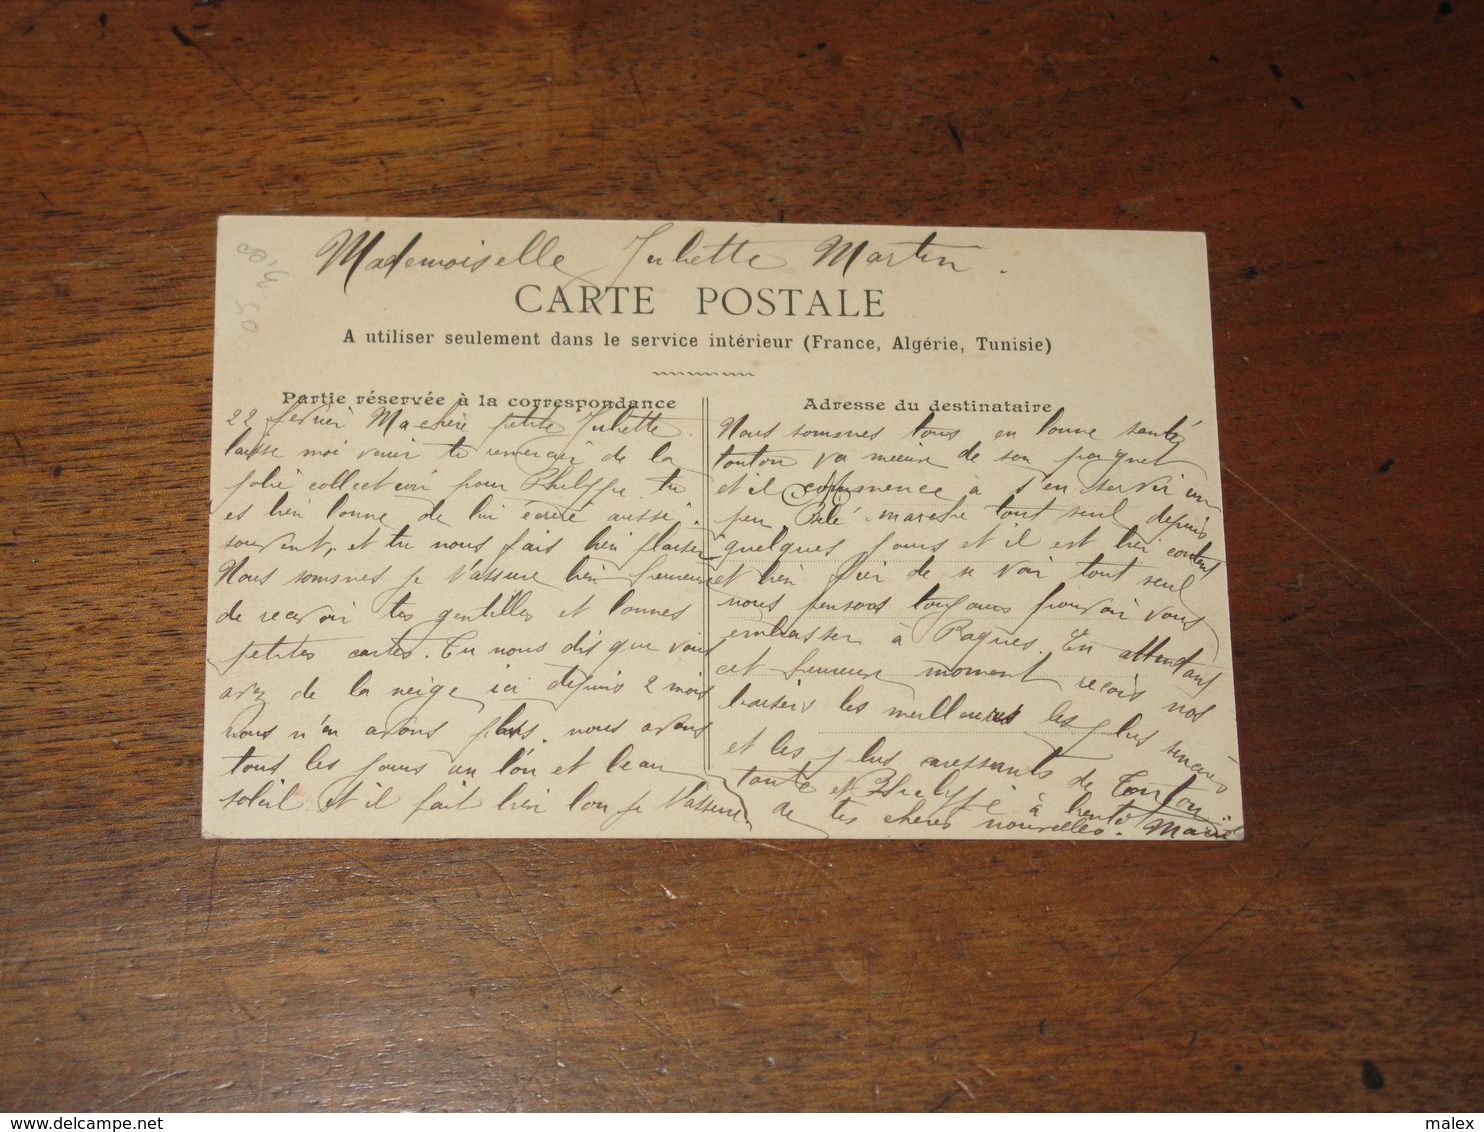 Mademoiselle Juliette Martin.
CARTE POSTALE
A utiliser seulement dans le service intérieur (France, Algérie, Tunisie)
Partie réservée à la correspondance
22 fevrier Ma chère petite Juliette.
laisse moi venir te remercier de la
jolie collection pour Philippe tu
es bien bonne de lui écrire aussi
souvent, et tu nous fais bien plaisir
Nous sommes je t'assure bien heureux
de recevoir tes gentilles et bonnes
petites cartes. Tu nous dis que vous
avez de la neige ici depuis 2 mois
nous n'en avons plus. nous avons
tous les jours un bon et beau
soleil et il fait bien bon je t'assure
Adresse du destinataire
Nous sommes tous en bonne santé
tonton va mieux de son poignet
et il commence à s'en servir un
peu Bébé marche tout seul depuis
quelques jours et il est bien content
et bien fier de se voir tout seul
nous pensons toujours pouvoir vous
embrasser à Paques. En attendant
cet heureux moment reçois nos
baisers les meilleurs les plus sincères
et les plus caressants de Tonton
tante et Philippe à bientôt
de tes chères nouvelles. Marie
3,00
50
www.delcampe.net
malex